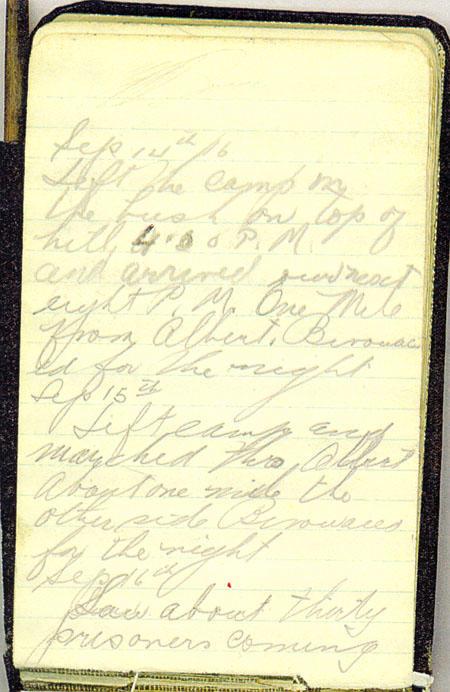 Sep 14th 16
Left the camp on
the bush on top of
hill 4.30 P.M.
and arrived
eight P.M. One Mile
from Albert. Bivouac
ed for the night
Sep 15th
Left camp and
marched thro Albert
About one mile the
other side Bivouaced
for the night
Sep 16th
Saw about thirty
prisoners coming